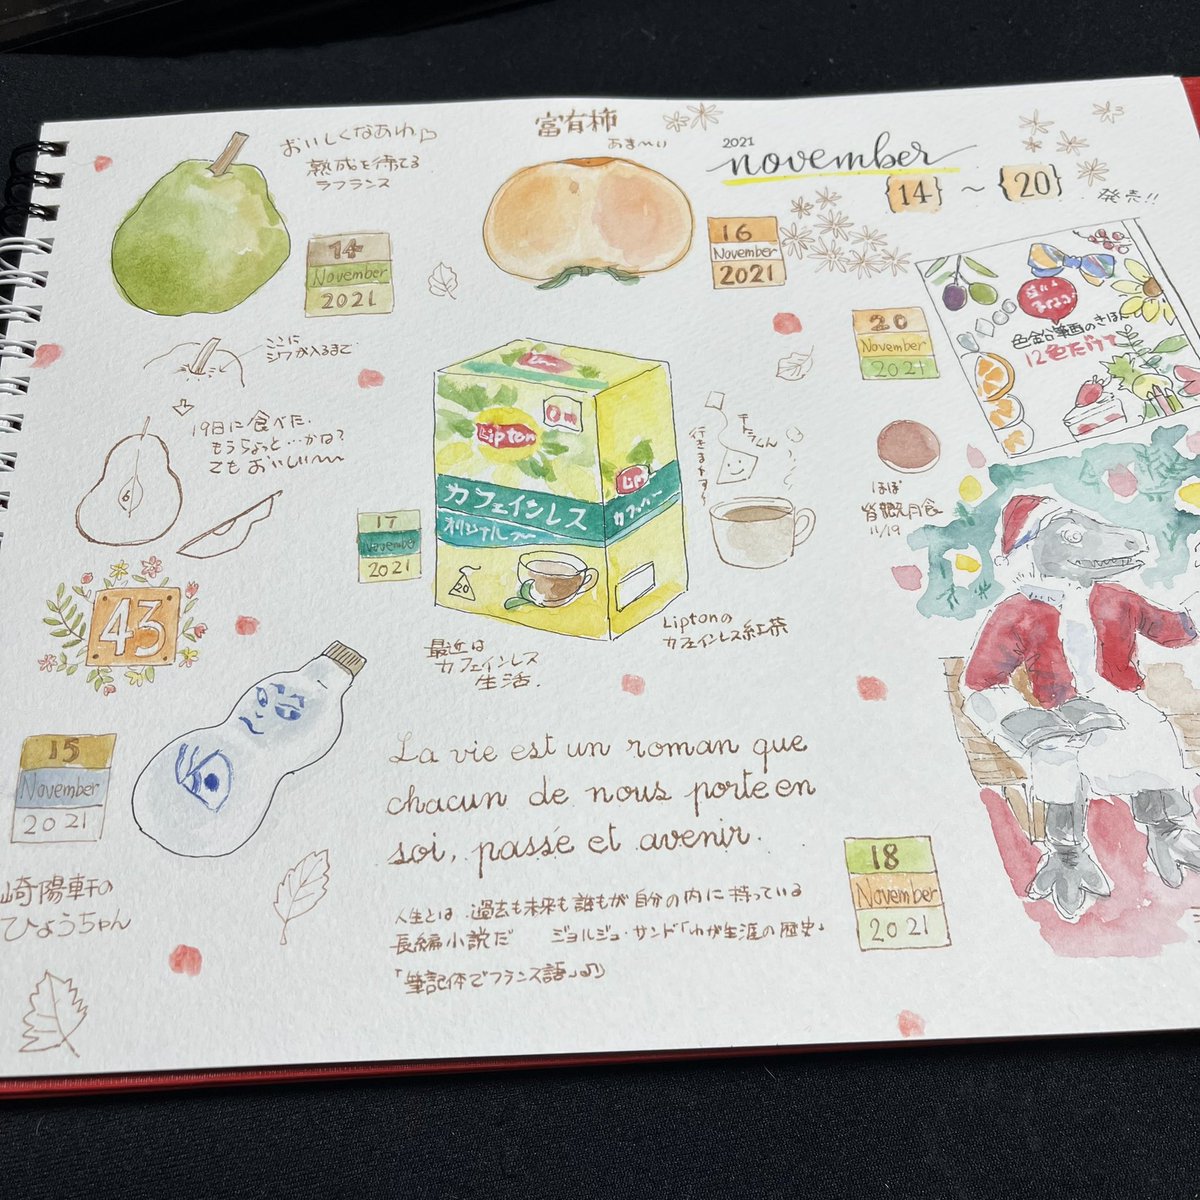 おいしくなあれ
熟成を待てる
ラフランス
14
November
2021
ここに
シワが入るまで
19日に食べた.
もうちょっと…かな?
でもおいしい〜〜
43
15
November
2021
崎陽軒の
ひょうちゃん
富有柿
あま〜い
16
November
2021
Lipton
カフェインレス
オリジナル
20
17
November
2021
最近は
カフェインレス
生活.
Liptonの
カフェインレス紅茶
行きまーす
La vie est un roman que
chacun de nous porte en
soi, passé et avenir.
人生とは、過去も未来も誰もが自分の内に持っている
長編小説だ ジョルジュ・サンド「わが生涯の歴史」
「筆記体でフランス語」
2021
november
{14} ~ {20}
発売!!
20
November
2021
色鉛筆画のきほん
12色だけで
ほぼ
皆既月食
11/19
18
November
2021